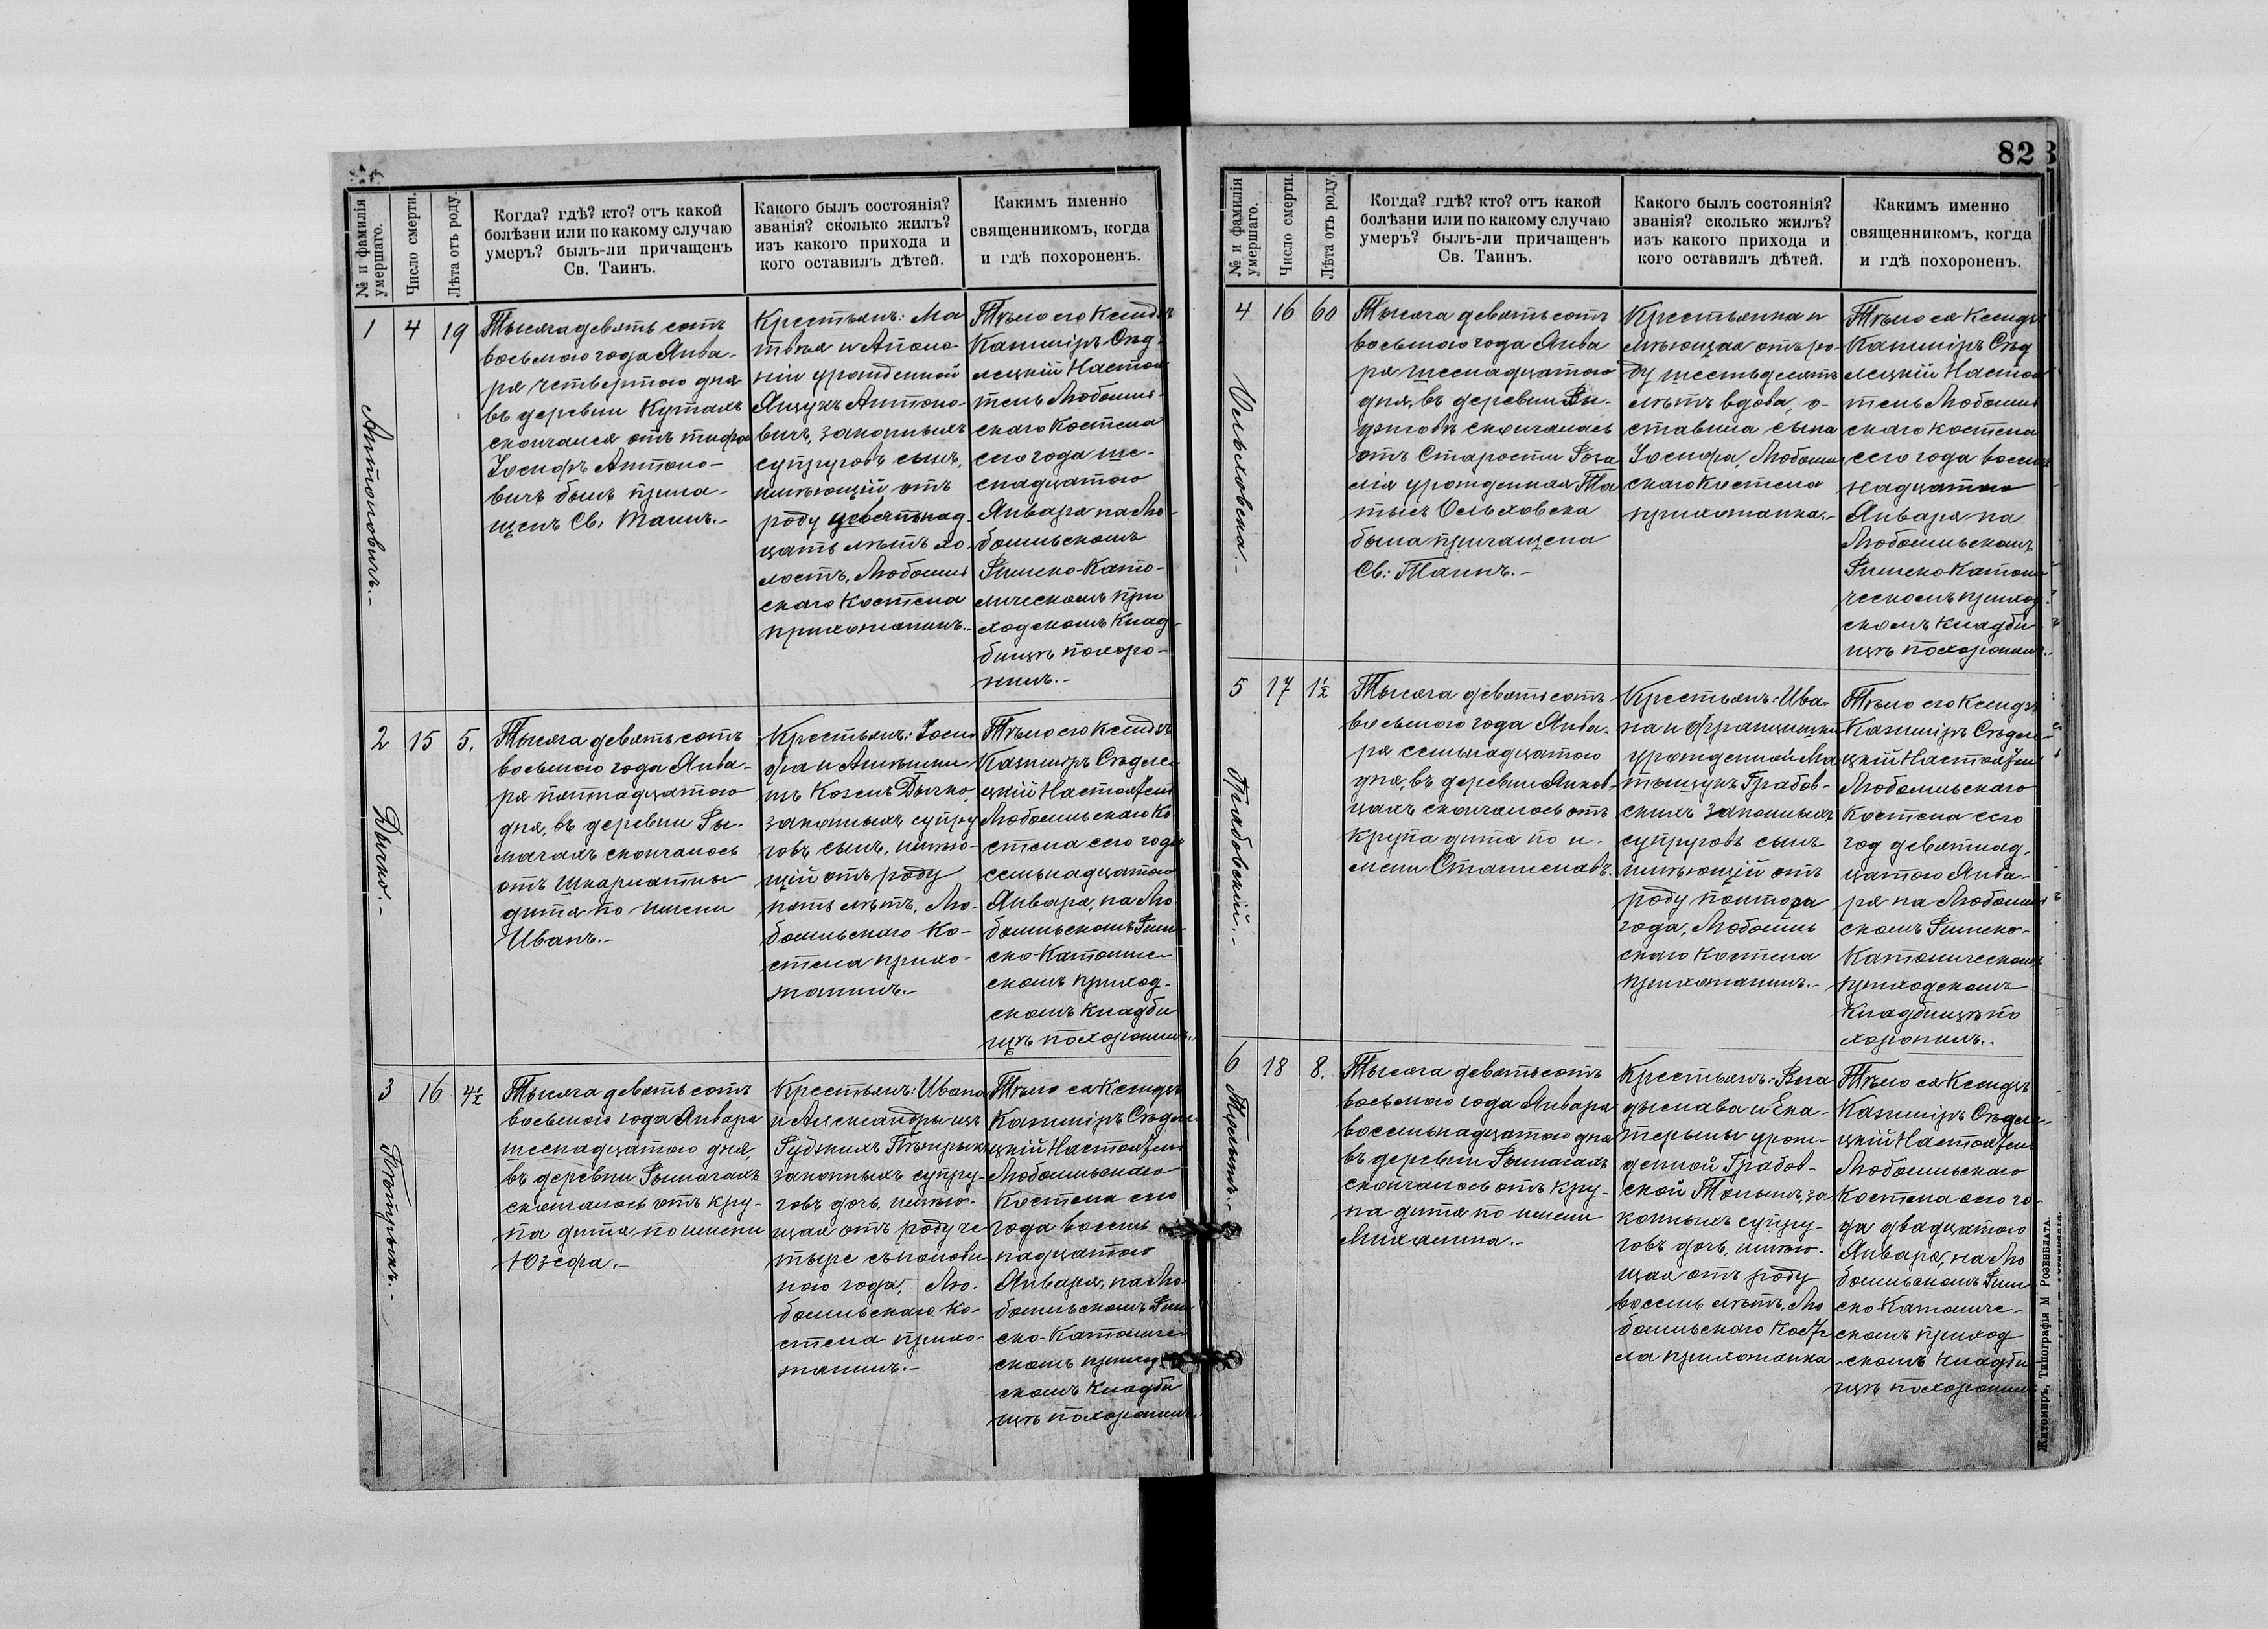 № и фамилія умершаго.
Число смерти.
Лѣта отъ роду.
Когда? гдѣ? кто? отъ какой
болѣзни или по какому случаю
умеръ? былъ-ли причащенъ
Св. Таинъ.
Какого былъ состоянія?
званія? сколько жилъ?
изъ какого прихода и
кого оставилъ дѣтей.
Какимъ именно
священникомъ, когда
и гдѣ похороненъ.
1
Антоновичъ.-
4
19
Тысяча девять сотъ
восьмого года Янва-
ря четвертого дня
въ деревни Кутахъ
скончался отъ тифа
Іосифъ Антоно-
вичъ былъ прича-
щенъ Св. Таинъ.-
Крестьянъ: Ма
твѣя и Аполо
ніи урожденной
Ящукъ Антоно-
вичъ, законныхъ
супруговъ сынъ,
имѣющій отъ
роду девятнад-
цать лѣтъ хо-
лостъ, Любомль
скаго Костела
прихожанинъ.-
Тѣло его Ксендзъ
Казиміръ Сѣд
лецкій Настоя
тель Любомль-
скаго Костела
сего года ше-
снадцатого
Января на Лю-
бомльскомъ
Римско-Като-
лическомъ при
ходскомъ Клад-
бищѣ похоро-
нилъ.-
2
Дычко.-
15
5.
Тысяча девять сотъ
восьмого года Янва-
ря пятнадцатого
дня, въ деревни Ры-
мачахъ скончалось
отъ шкарлатны
дитя по имени
Иванъ.-
Крестьянъ: Іоси
фа и Агнѣшки
изъ Козелъ Дычко,
законныхъ супру
говъ сынъ, имѣю-
щій отъ роду
пять лѣтъ, Лю-
бомльскаго Ко-
стела прихо-
жанинъ.-
Тѣло его Ксендзъ
Казиміръ Сѣдле
цкій Настоятель
Любомльскаго Ко
стела сего года
семьнадцатого
Января, на Лю
бомльскомъ Рим-
ско-Католиче-
скомъ приход-
скомъ Кладби
щѣ похоронилъ.
3
16
4½
Тысяча девять сотъ
восьмого года Января
шеснадцатого дня,
въ деревни Рымачахъ
скончалось отъ кру-
па дитя по имени
Юзефа.-
Крестьянъ: Ивана
и Александры изъ
законныхъ супру-
говъ дочь, имѣю-
щая отъ роду че
тыре съ полови-
ною года, Лю-
бомльскаго Ко-
стела прихо-
жанинъ.-
Тѣло ея Ксендзъ
Казиміръ Сѣдле-
цкій Настоятель
Любомльскаго
Костела сего
года восемь
надцатого
Января, на Лю-
бомльскомъ Рим
ско-Католиче-
скомъ приход
скомъ Кладби
щѣ похоронилъ.
82
№ и фамилія умершаго.
Число смерти.
Лѣта отъ роду.
Когда? гдѣ? кто? отъ какой
болѣзни или по какому случаю
умеръ? былъ-ли причащенъ
Св. Таинъ.
Какого былъ состоянія?
званія? сколько жилъ?
изъ какого прихода и
кого оставилъ дѣтей.
Какимъ именно
священникомъ, когда
и гдѣ похороненъ.
4
Ольховска.-
16
60
Тысяча девять сотъ
восьмого года Янва
ря шеснадцатого
дня, въ деревни
скончалась
отъ Старости Роза
лія урожденная
Ольховска
была причащена
Св: Таинъ.-
Крестьянка и
мѣющая отъ ро-
ду шестьдесятъ
лѣтъ вдова, о-
ставила сына
Іосифа, Любомль
скаго Костела
прихожанка.-
Тѣло ея Ксендзъ
Казиміръ Сѣд
лецкій Настоя
тель Любомль
скаго Костела
сего года восемь
надцатого
Января на
Любомльскомъ
Римско Католи
ческомъ приход-
скомъ Кладби
щѣ похоронилъ.
5
Грабовскій.-
17
1½
Тысяча девять сотъ
восьмого года Янва-
ря семьнадцатого
дня, въ деревни Янков-
цахъ скончалось отъ
крупа дитя по и-
мени Станиславъ.
Крестьянъ: Ива-
на и Францишки
урожденной Ма
тыщукъ Грабов-
скихъ законныхъ
супруговъ сынъ
имѣющій отъ
роду полтора
года, Любомль
скаго Костела
прихожанинъ.-
Тѣло его Ксендзъ
Казиміръ Сѣдле-
цкій Настоятель
Любомльскаго
Костела сего
год девятнад-
цатого Янва-
ря на Любомль
скомъ Римско-
Католическомъ
приходскомъ
Кладбищѣ по
хоронилъ..
6
18
8.
Тысяча девять сотъ
восьмого года Января
восемьнадцатого дня
въ деревни Рымачахъ
скончалось отъ кру-
па дитя по имени
Михалина.-
Крестьянъ: Вла
дыслава и Ека-
терины урож-
денной Грабов-
ской за-
конныхъ супру-
говъ дочь, имѣю-
щая отъ роду
восемь лѣтъ, Лю
бомльскаго Косте
ла прихожанка
Тѣло ея Ксендзъ
Казиміръ Сѣдле-
цкій Настоятель
Любомльскаго
Костела сего го-
да двадцатого
Января, на Лю
бомльскомъ Рим
ско Католиче-
скомъ приход
-скомъ Кладби
щѣ похоронилъ
Житомиръ, Типографія М Розенблата.